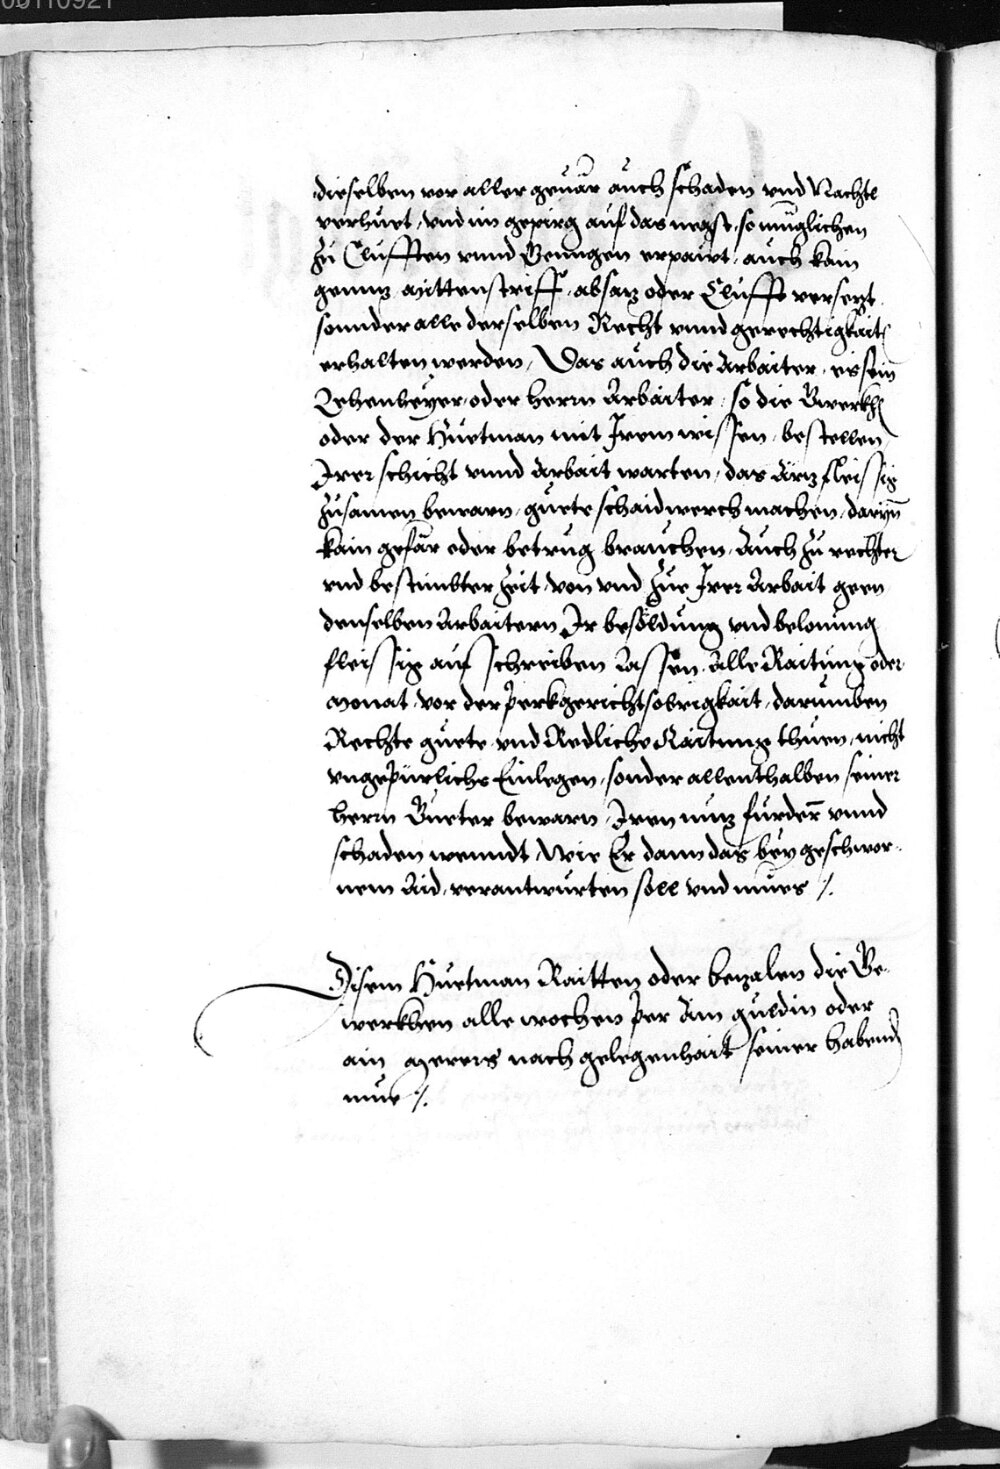 dieselben vor aller geuär auch schaden vnd Nachtl
verhuet, vnd im gepirg auf das negst, so müglichen
zu Clufften vnnd Genngen erpawt, auch kain
genng, mittenstriff, absaz oder Clufft versezt
sonnder alle derselben Recht vnnd gerechtigkait
erhalten werden, Das auch die Arbaiter, es sein
Lehenheyer, oder herrn Arbaiter, so die Gwerkh
oder der Huetman mit Irem wissen, bestellen
Irer schicht vnnd Arbait warten, das Ärz fleissig
zusamen bewarn, guete schaidwerch machen, darynn
kain gefär oder betrug brauchen, Auch zu rechter
vnd bestimbter zeit, von vnd zue Irer Arbait geen
denselben Arbaitern Ir besöldung vnd belonung
fleissig aufschreiben lassen, Alle Raitung oder
monat, vor der Perkgerichtsobrigkait, darumben
Rechte guete vnd Redliche Raitung thuen, nicht
vngepürlichs Einlegen, sonder allenthalben seiner
herrn Güeter bewarn, Iren nuz fürdern vnnd
schaden wenndt, Wie Er dann das bey geschwor-
nem Aid, verantwurten soll vnd mues
Disem Huetman Raitten oder bezalen die Ge-
werkhen alle wochen per Ain guldin oder
ain merers nach gelegenhait seiner habend
mue